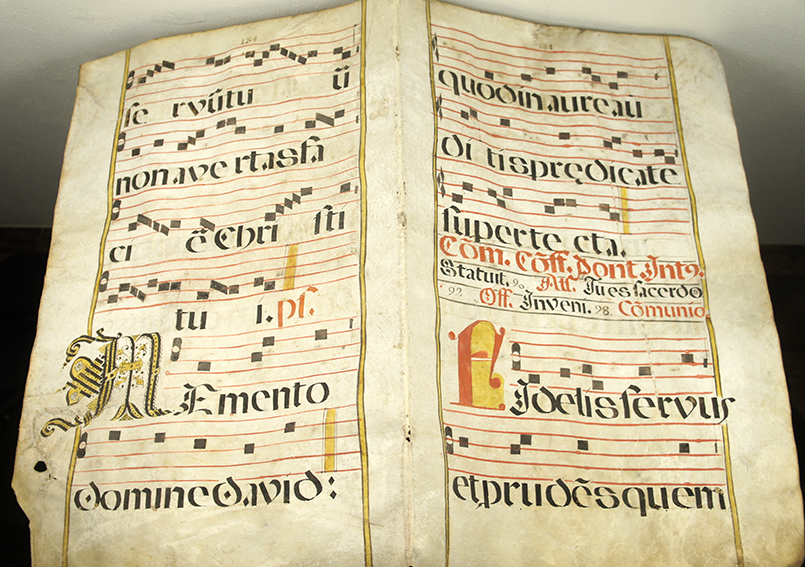 se rvũtu ũ
non ave rtas fa
ci ẽ Chri sti
tu i. ps.
MEmento
domine David:
quod in aureaũ
di tis prędicate
super te cta.
Cõm. Cõff. Pont. Int9.
Statuit. 90 All. Tu es sacerdo
92 Off. Inveni. 98. Cõmunio.
Fidelis servus
et prudẽs quem